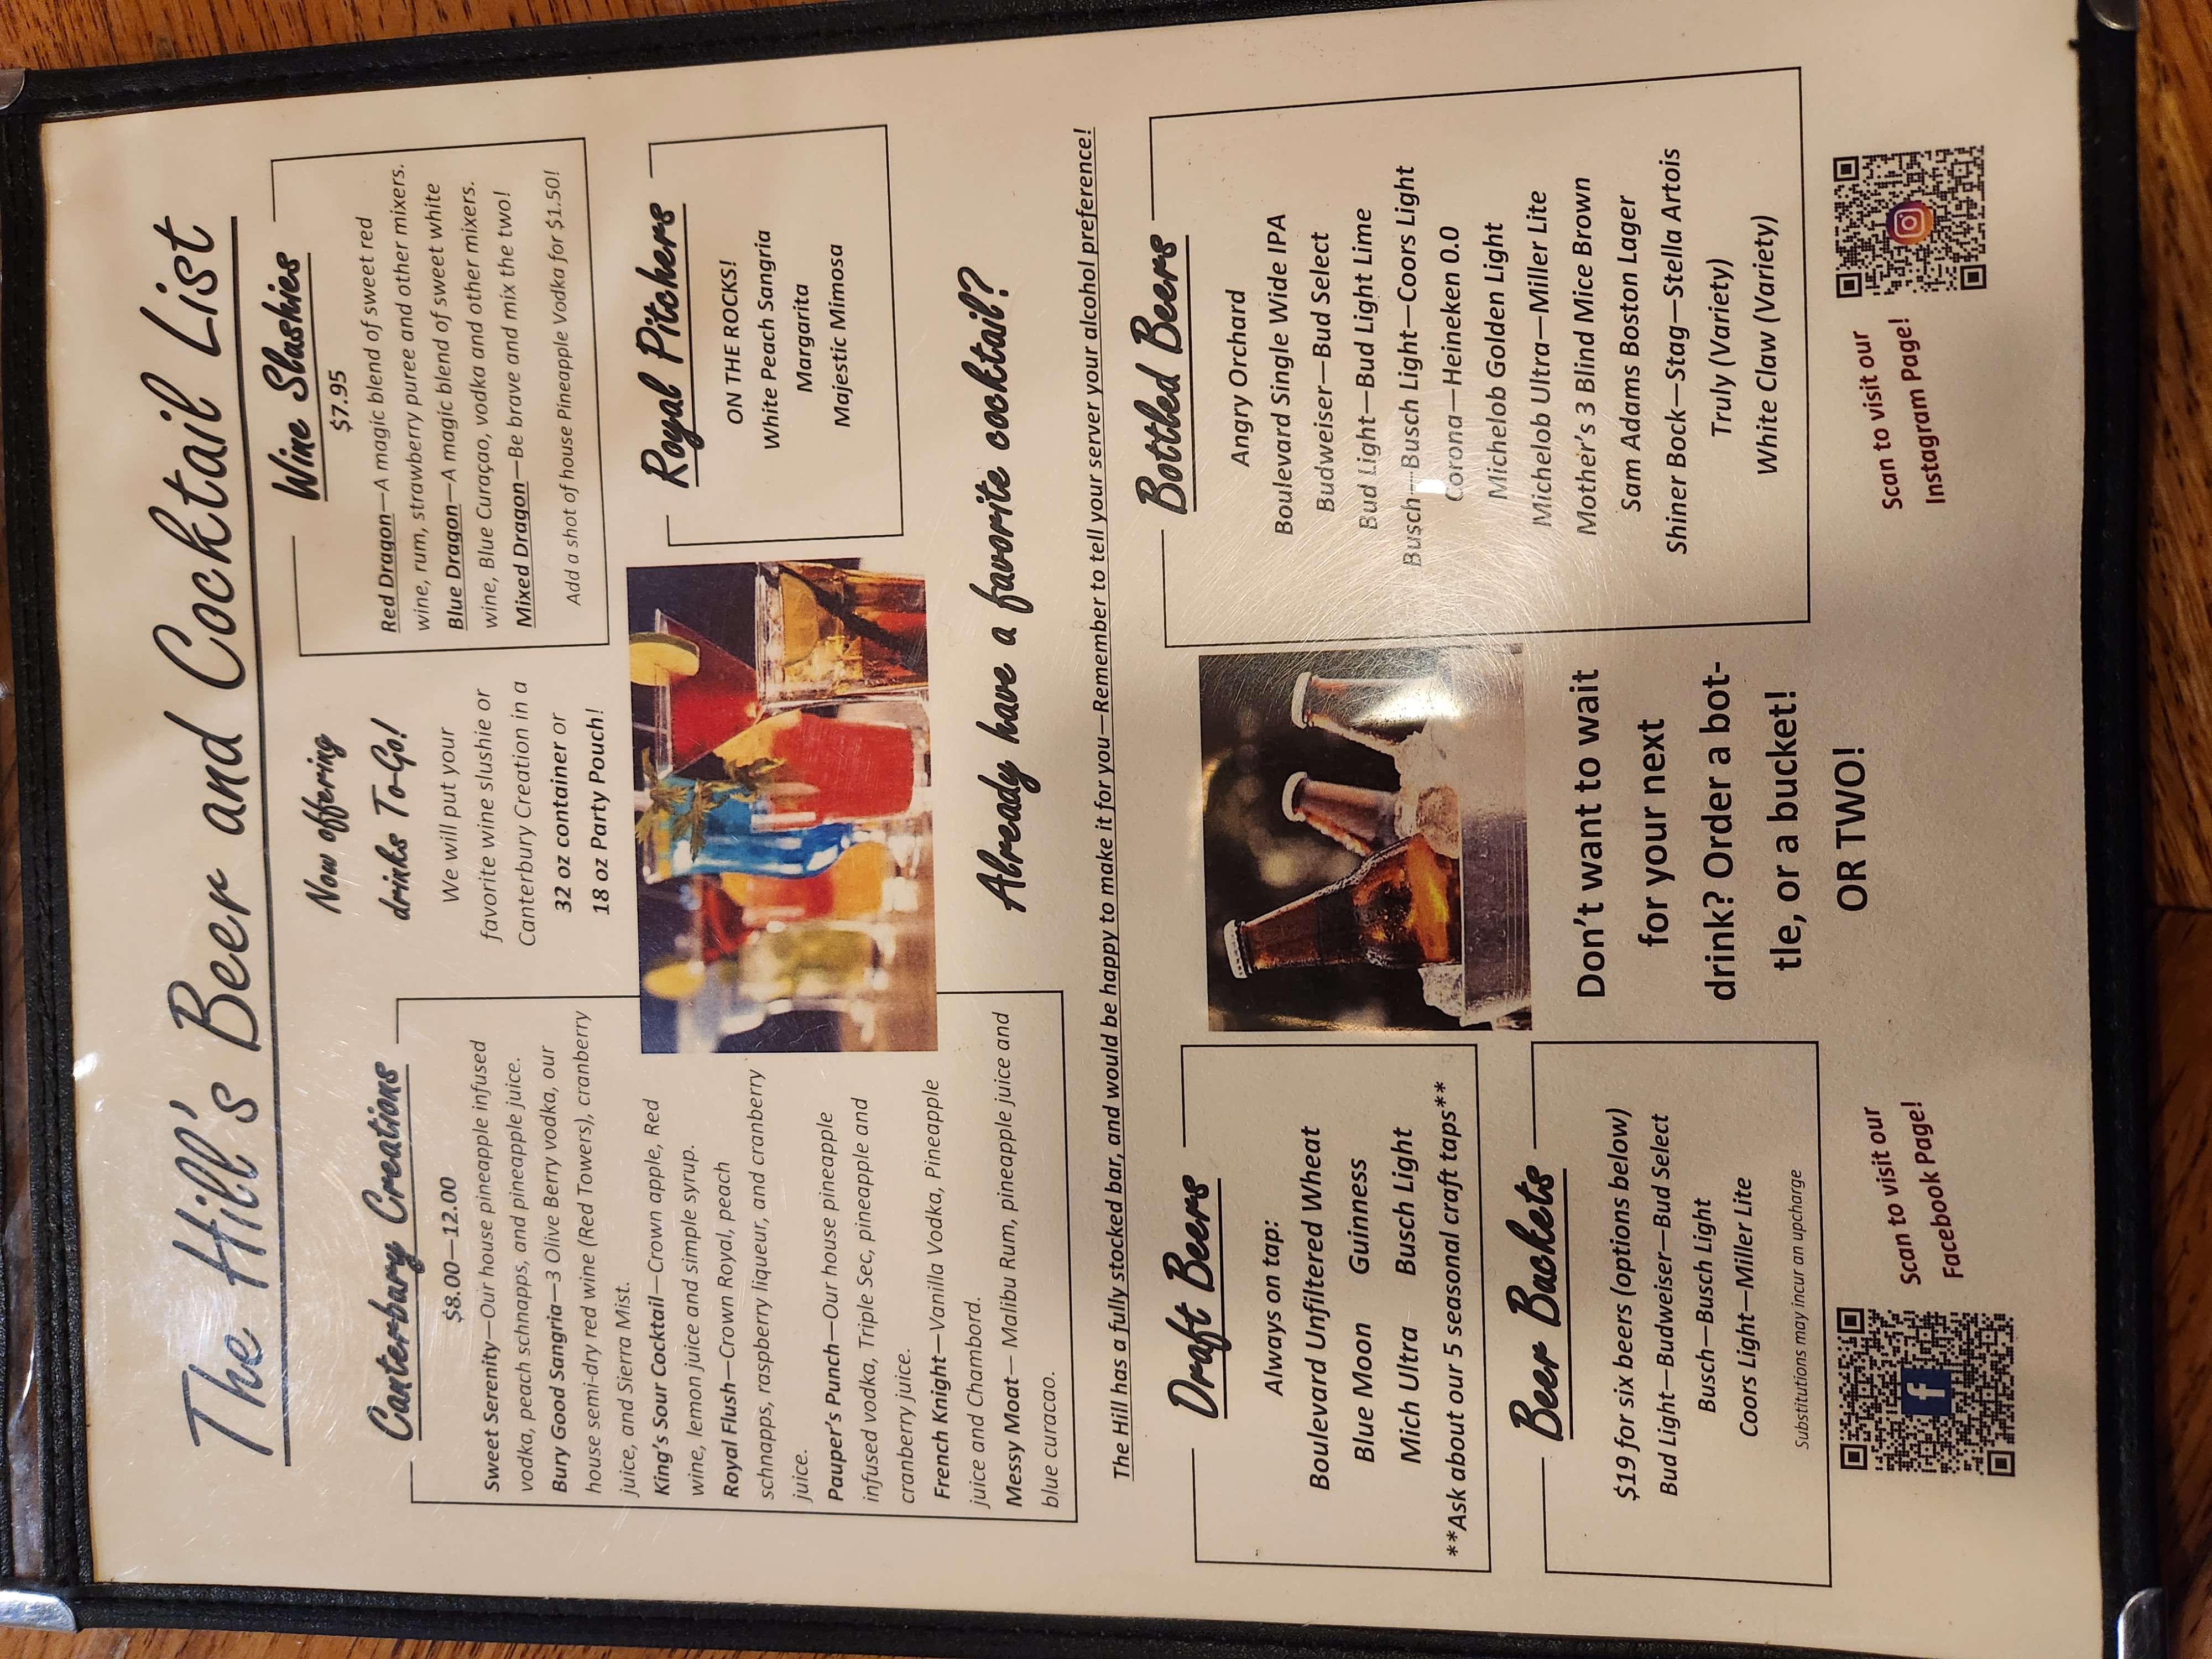 The Hill's Beer and Cocktail List
Canterbury Creations
$8.00—12.00
Sweet Serenity—Our house pineapple infused
vodka, peach schnapps, and pineapple juice.
Bury Good Sangria—3 Olive Berry vodka, our
house semi-dry red wine (Red Towers), cranberry
juice, and Sierra Mist.
King's Sour Cocktail—Crown apple, Red
wine, lemon juice and simple syrup.
Royal Flush—Crown Royal, peach
schnapps, raspberry liqueur, and cranberry
juice.
Pauper's Punch—Our house pineapple
infused vodka, Triple Sec, pineapple and
cranberry juice.
French Knight—Vanilla Vodka, Pineapple
juice and Chambord.
Messy Moat— Malibu Rum, pineapple juice and
blue curacao.
Now offering
drinks To-Go!
We will put your
favorite wine slushie or
Canterbury Creation in a
32 oz container or
18 oz Party Pouch!
Wine Slushies
$7.95
Red Dragon—A magic blend of sweet red
wine, rum, strawberry puree and other mixers.
Blue Dragon—A magic blend of sweet white
wine, Blue Curaçao, vodka and other mixers.
Mixed Dragon—Be brave and mix the two!
Add a shot of house Pineapple Vodka for $1.50!
Royal Pitchers
ON THE ROCKS!
White Peach Sangria
Margarita
Majestic Mimosa
Already have a favorite cocktail?
The Hill has a fully stocked bar, and would be happy to make it for you—Remember to tell your server your alcohol preference!
Draft Beers
Always on tap:
Boulevard Unfiltered Wheat
Blue Moon Guinness
Mich Ultra Busch Light
**Ask about our 5 seasonal craft taps**
Beer Buckets
$19 for six beers (options below)
Bud Light—Budweiser—Bud Select
Busch—Busch Light
Coors Light—Miller Lite
Substitutions may incur an upcharge
Don't want to wait
for your next
drink? Order a bot-
tle, or a bucket!
OR TWO!
Bottled Beers
Angry Orchard
Boulevard Single Wide IPA
Budweiser—Bud Select
Bud Light—Bud Light Lime
Busch—Busch Light—Coors Light
Corona—Heineken 0.0
Michelob Golden Light
Michelob Ultra—Miller Lite
Mother's 3 Blind Mice Brown
Sam Adams Boston Lager
Shiner Bock—Stag—Stella Artois
Truly (Variety)
White Claw (Variety)
Scan to visit our
Facebook Page!
Scan to visit our
Instagram Page!